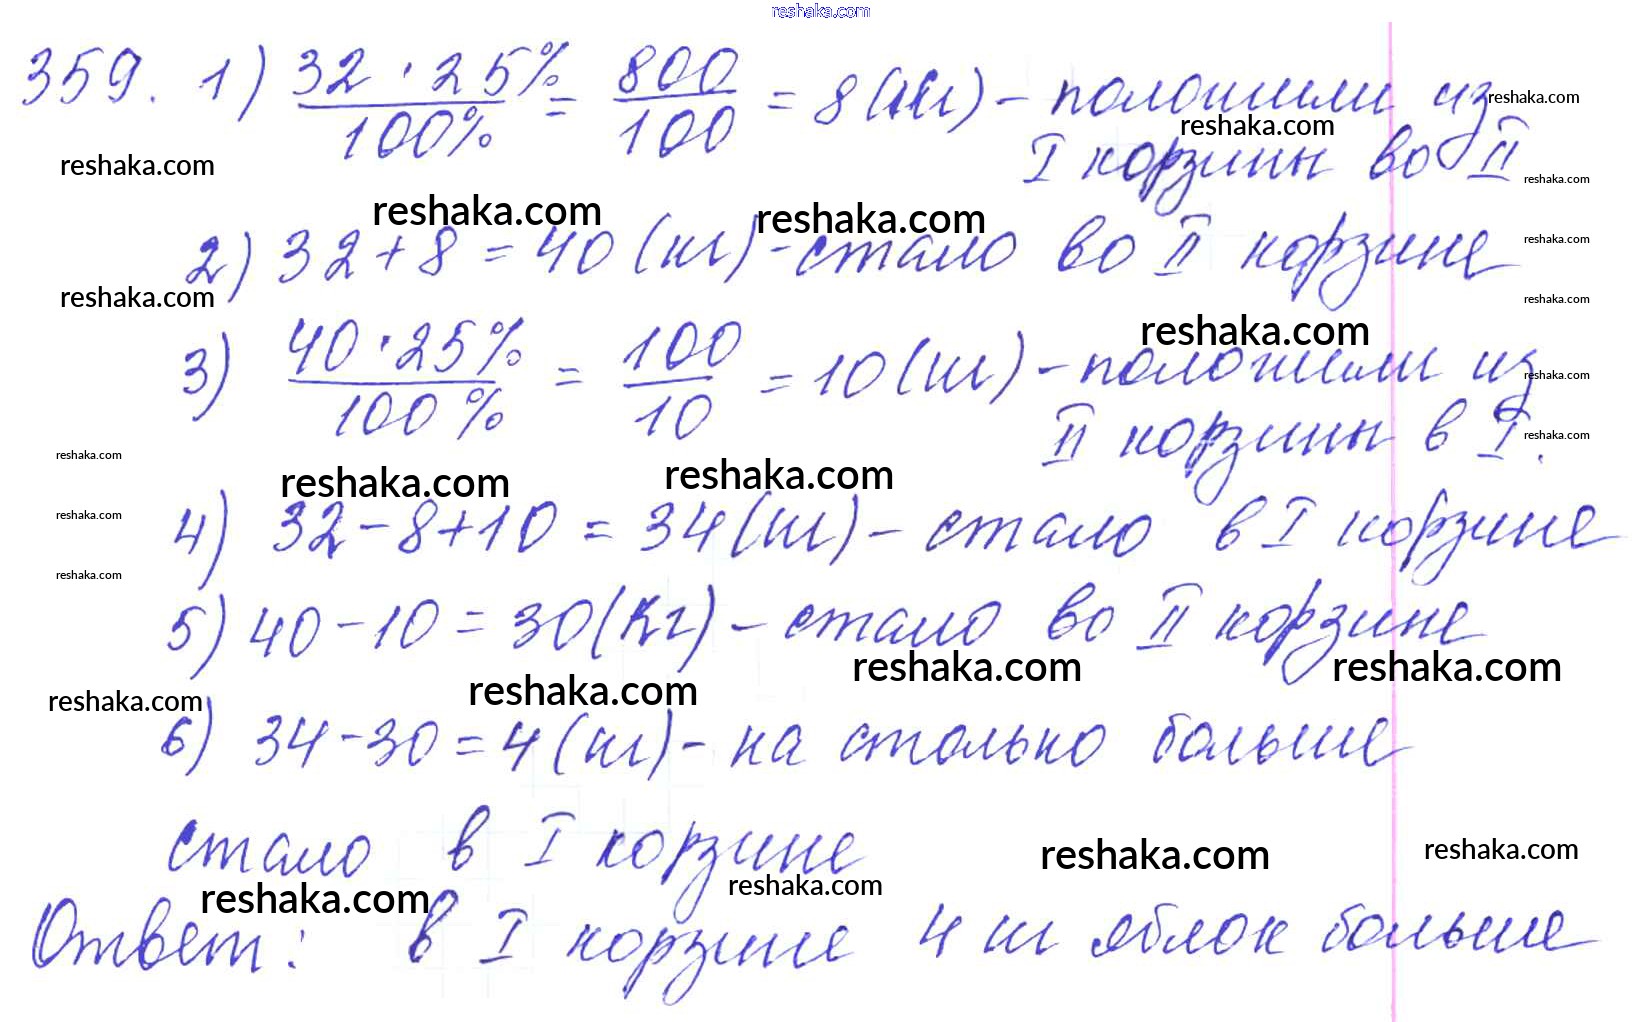 reshaka.com
359. 1) 32 · 25% / 100% = 800 / 100 = 8 (кг) - положили из
reshaka.com
reshaka.com
I корзины во II
reshaka.com
reshaka.com
reshaka.com
reshaka.com
2) 32 + 8 = 40 (кг) - стало во II корзине
reshaka.com
reshaka.com
reshaka.com
reshaka.com
3) 40 · 25% / 100% = 100 / 10 = 10 (кг) - положили из
reshaka.com
II корзины в I.
reshaka.com
reshaka.com
reshaka.com
reshaka.com
4) 32 - 8 + 10 = 34 (кг) - стало в I корзине
reshaka.com
reshaka.com
5) 40 - 10 = 30 (кг) - стало во II корзине
reshaka.com
reshaka.com
reshaka.com
reshaka.com
6) 34 - 30 = 4 (кг) - на столько больше
стало в I корзине
reshaka.com
reshaka.com
reshaka.com
reshaka.com
Ответ: в I корзине 4 кг яблок больше